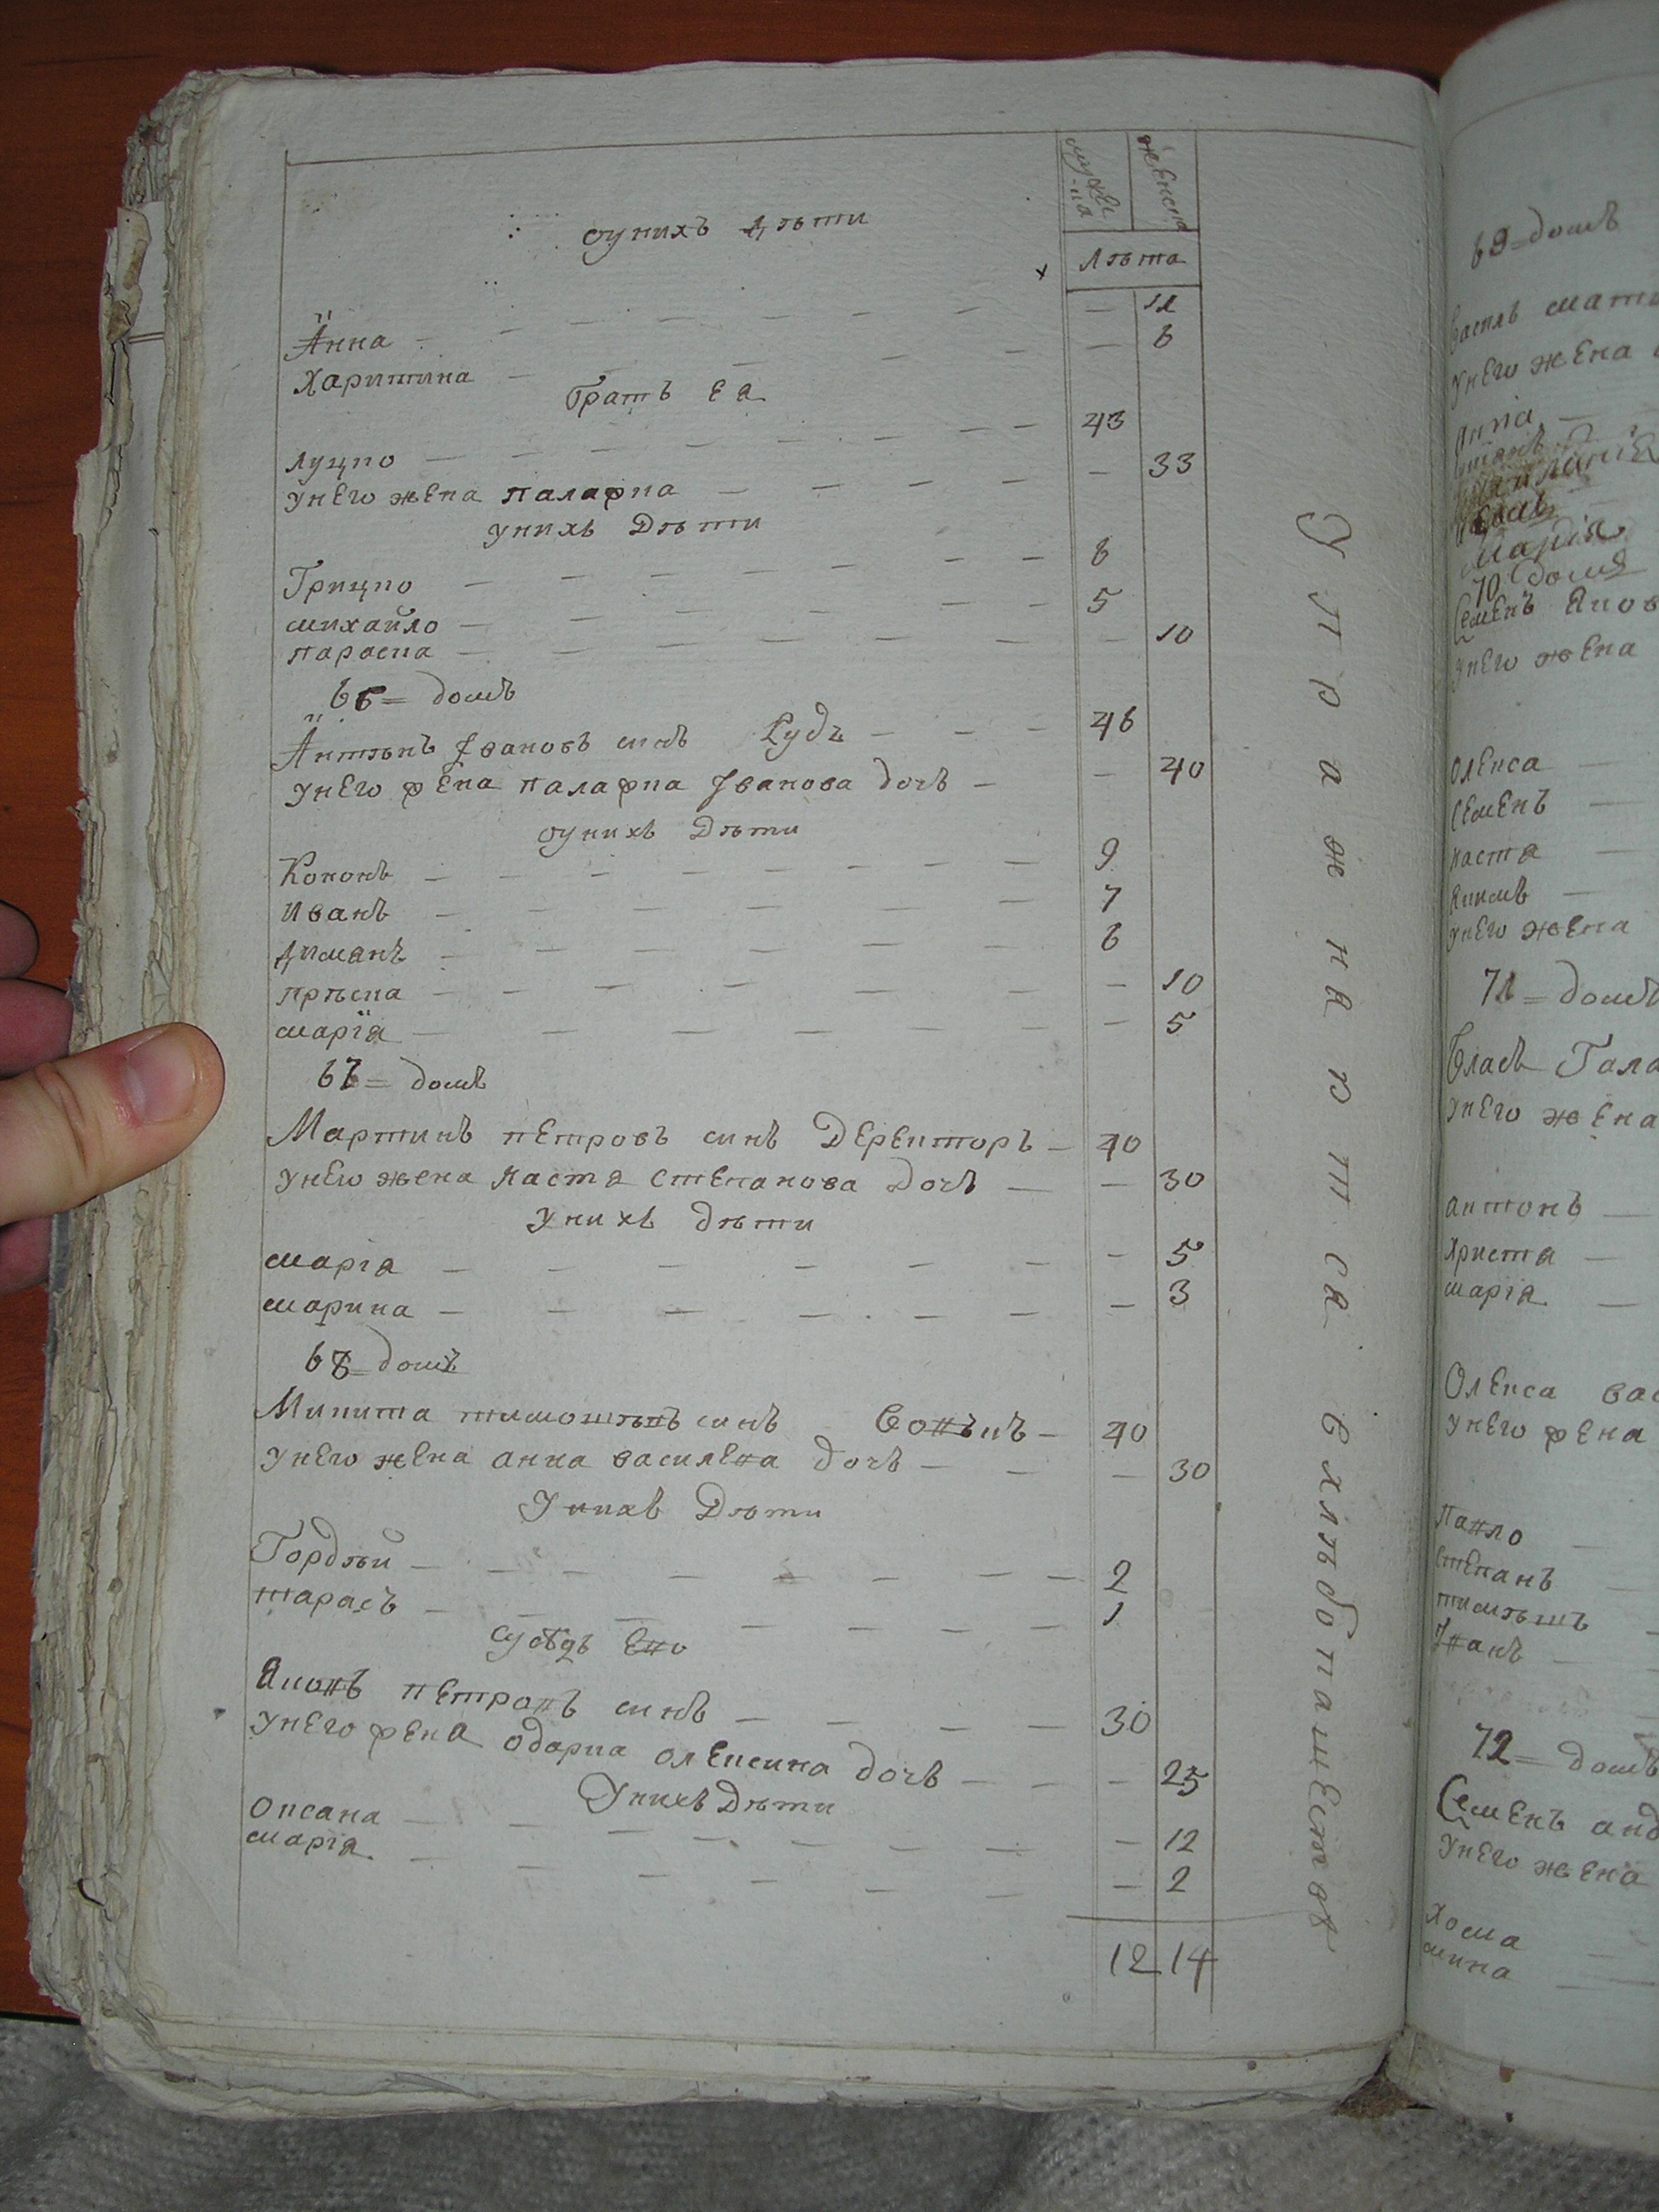 мужеска
женска
оунихъ дѣти
Лѣта
Анна — — 12
Харитина — — 6
братъ еѧ
Луцко — 43 —
унего жена палажка — — 33
унихъ Дѣти
Грицко — 8
михайло — 5
параска — — 10
66 = домъ
Антѣнъ Ивановъ синъ Рудъ — 46
унего жена палажка Иванова дочъ — — 40
оунихъ Дѣти
Кононъ — 9
Иванъ — 7
димянъ — 6
прѣска — — 10
марїя — — 5
67 = домъ
Мартинъ петровъ синъ — 40
унего жена настя степанова дочъ — — 30
унихъ дѣти
марія — — 5
марина — — 3
68 = домъ
Микита тимошѣвъ синъ Вовъкъ — 40
унего жена анна василева дочъ — — 30
Унихъ Дѣти
Гордѣй — 2
тарасъ — 1
сусѣдъ Ево
Яковъ петровъ синъ — 30
унего жена одарка олексина дочъ — — 25
Унихъ Дѣти
Оксана — — 12
марія — — 2
12 14
Упражняютсѧ Вхлѣбопашествѣ
69 = домъ
унего жена
Анна —
марія
70 домъ
Семенъ Яков
унего жена
Олекса —
Семенъ —
настя —
Якимъ —
унего жена
71 = домъ
Власъ Гала
унего жена
антонъ —
Христя —
марія —
Олекса вас
унего жена
Павло
степанъ
тимѣшъ
Иванъ
72 = домъ
Семенъ анд
унего жена
Хома